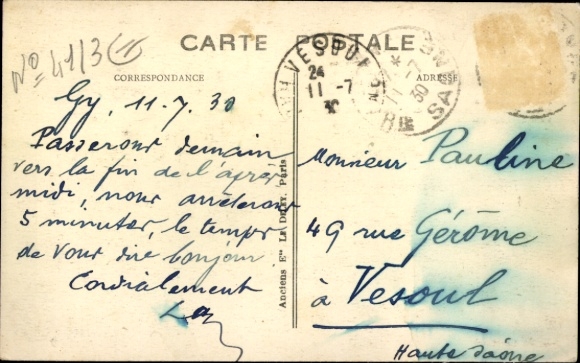 No 41/3
CARTE POSTALE
CORRESPONDANCE
ADRESSE
VESOUL
24
11 -7
30
Gy, 11.7.30
Passerons demain
vers la fin de l'après
midi, nous arrêterons
5 minutes, le temps
de vous dire bonjour
Cordialement
Anciens Ets Le Deley, Paris
Monsieur Pauline
49 rue Gérôme
à Vesoul
Haute Saône